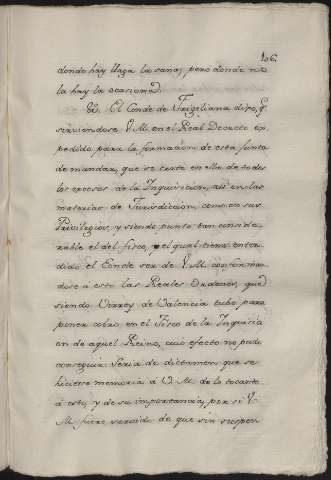 106
donde hay llaga la sana; pero donde no
la hay la ocasiona.
El Conde de Frigiliana dixo, q
sirviendose V. M. en el Real Decreto ex
pedido para la formacion de esta Junta
de mandar, que se trate en ella de todos
los excesos de la Inquisicion, asi en las
materias de Jurisdiccion, como en sus
Privilegios, y siendo punto tan conside
rable el del fisco, el qual tiene enten
dido el Conde ser de V. M. conforman
dose a esto las Reales Ordenes, que
siendo Virrey de Valencia tubo para
poner cobro en el Fisco de la Inquisici
on de aquel Reino, cuio efecto no pudo
conseguir: Seria de dictamen que se
hiciese memoria á V. M. de lo tocante
á esto, y de su importancia, por si V.
M. fuere servido de que sin suspen